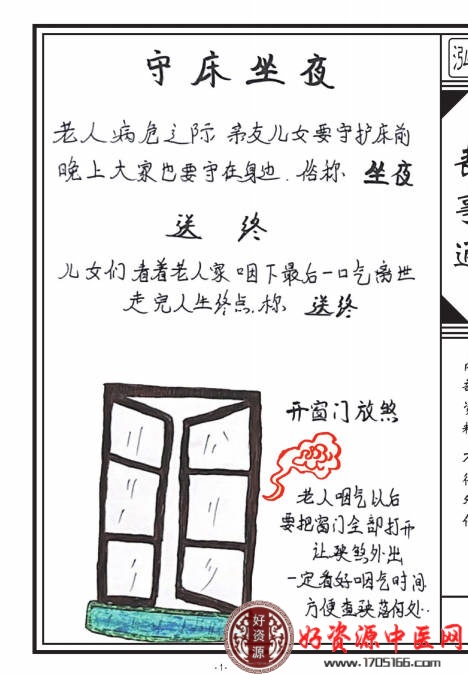 守床坐夜
老人病危之际 亲友儿女要守护床前
晚上大家也要守在身边.俗称、坐夜
送 终
儿女们看着老人家咽下最后一口气离世
走完人生终点.称、送终
开窗门放煞
老人咽气以后
要把窗门全部打开
让殃煞外出
一定看好咽气时间
方便查殃落何处..
好资源
好资源中医网
www.1705166.com
·1·
泓
丧
事
通